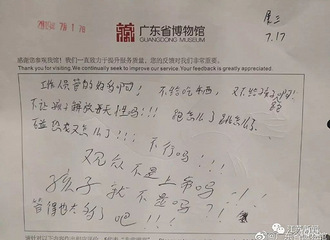 广东省博物馆
GUANGDONG MUSEUM
星三
7.17
感谢您参观我馆！我们一直致力于提升服务质量，您的反馈对我们非常重要。
Thank you for visiting. We continually seek to improve our service. Your feedback is greatly appreciated.
工作人员管的好多啊！不给吃东西，又不给孩子
不让孩子解放天性吗!!! 跑怎么了 跳怎么了
碰 怎么了!!! 不行吗!!!
观众不是上帝吗
孩子就不是吗?!!!
管得也太多了吧!!!